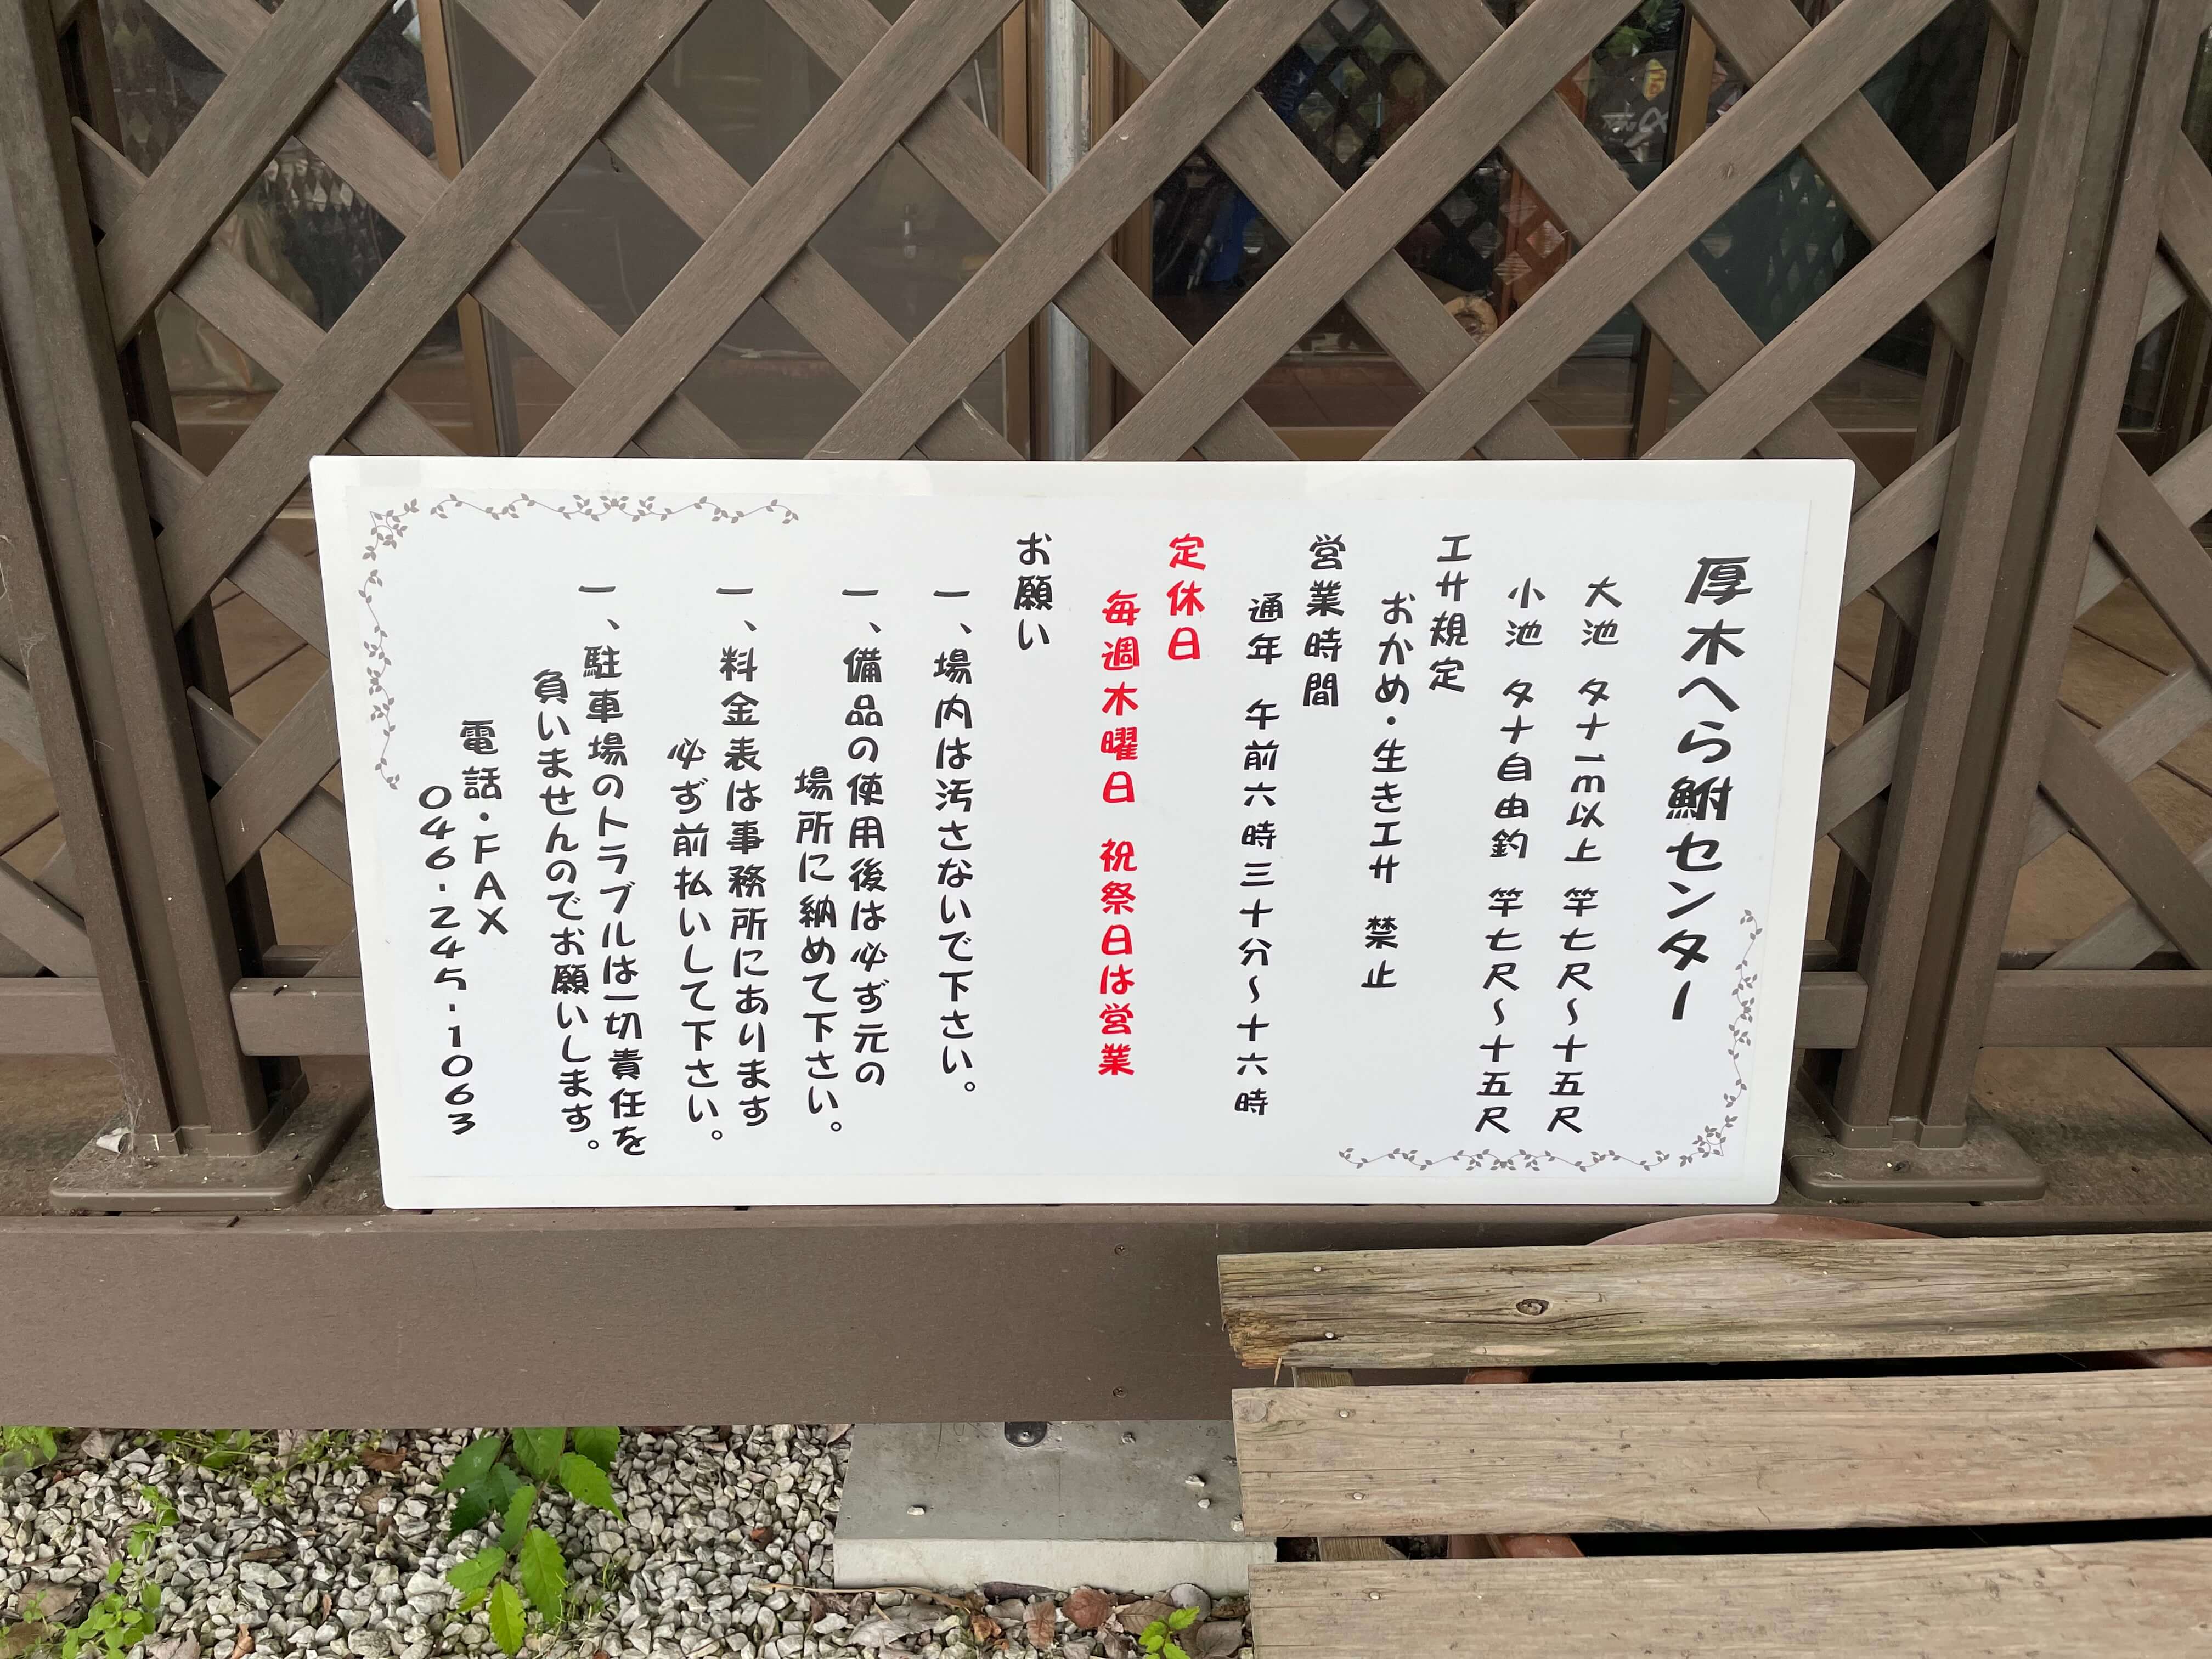 厚木へら鮒センター
大池 タナ一m以上 竿七尺～十五尺
小池 タナ自由釣 竿七尺～十五尺
エサ規定
おかめ・生きエサ 禁止
営業時間
通年 午前六時三十分～十六時
定休日
毎週木曜日 祝祭日は営業
お願い
一、場内は汚さないで下さい。
一、備品の使用後は必ず元の
場所に納めて下さい。
一、料金表は事務所にあります
必ず前払いして下さい。
一、駐車場のトラブルは一切責任を
負いませんのでお願いします。
電話・FAX
046-245-1063